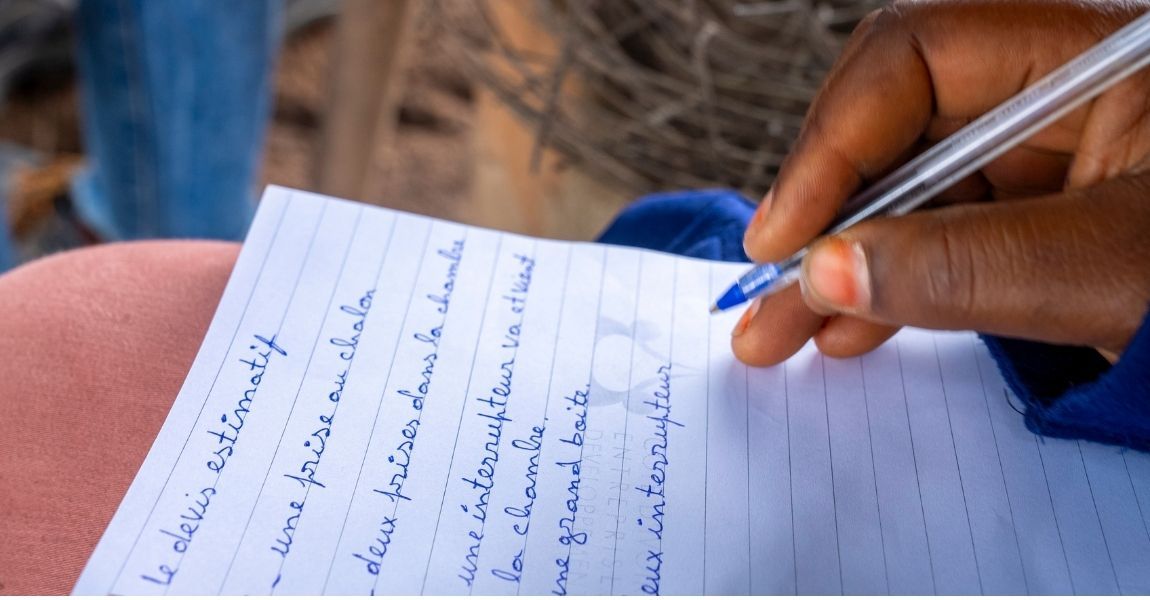 Le devis estimatif
- une prise au chalon
- deux prises dans la chambre
une interrupteur va et vient
la chambre.
une grand boite.
eux interrupteur
ENTREPRISE
DEVELOPPEMEN